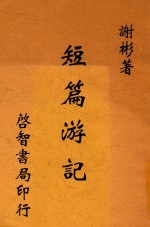 謝彬著
短篇游記
啓智書局印行